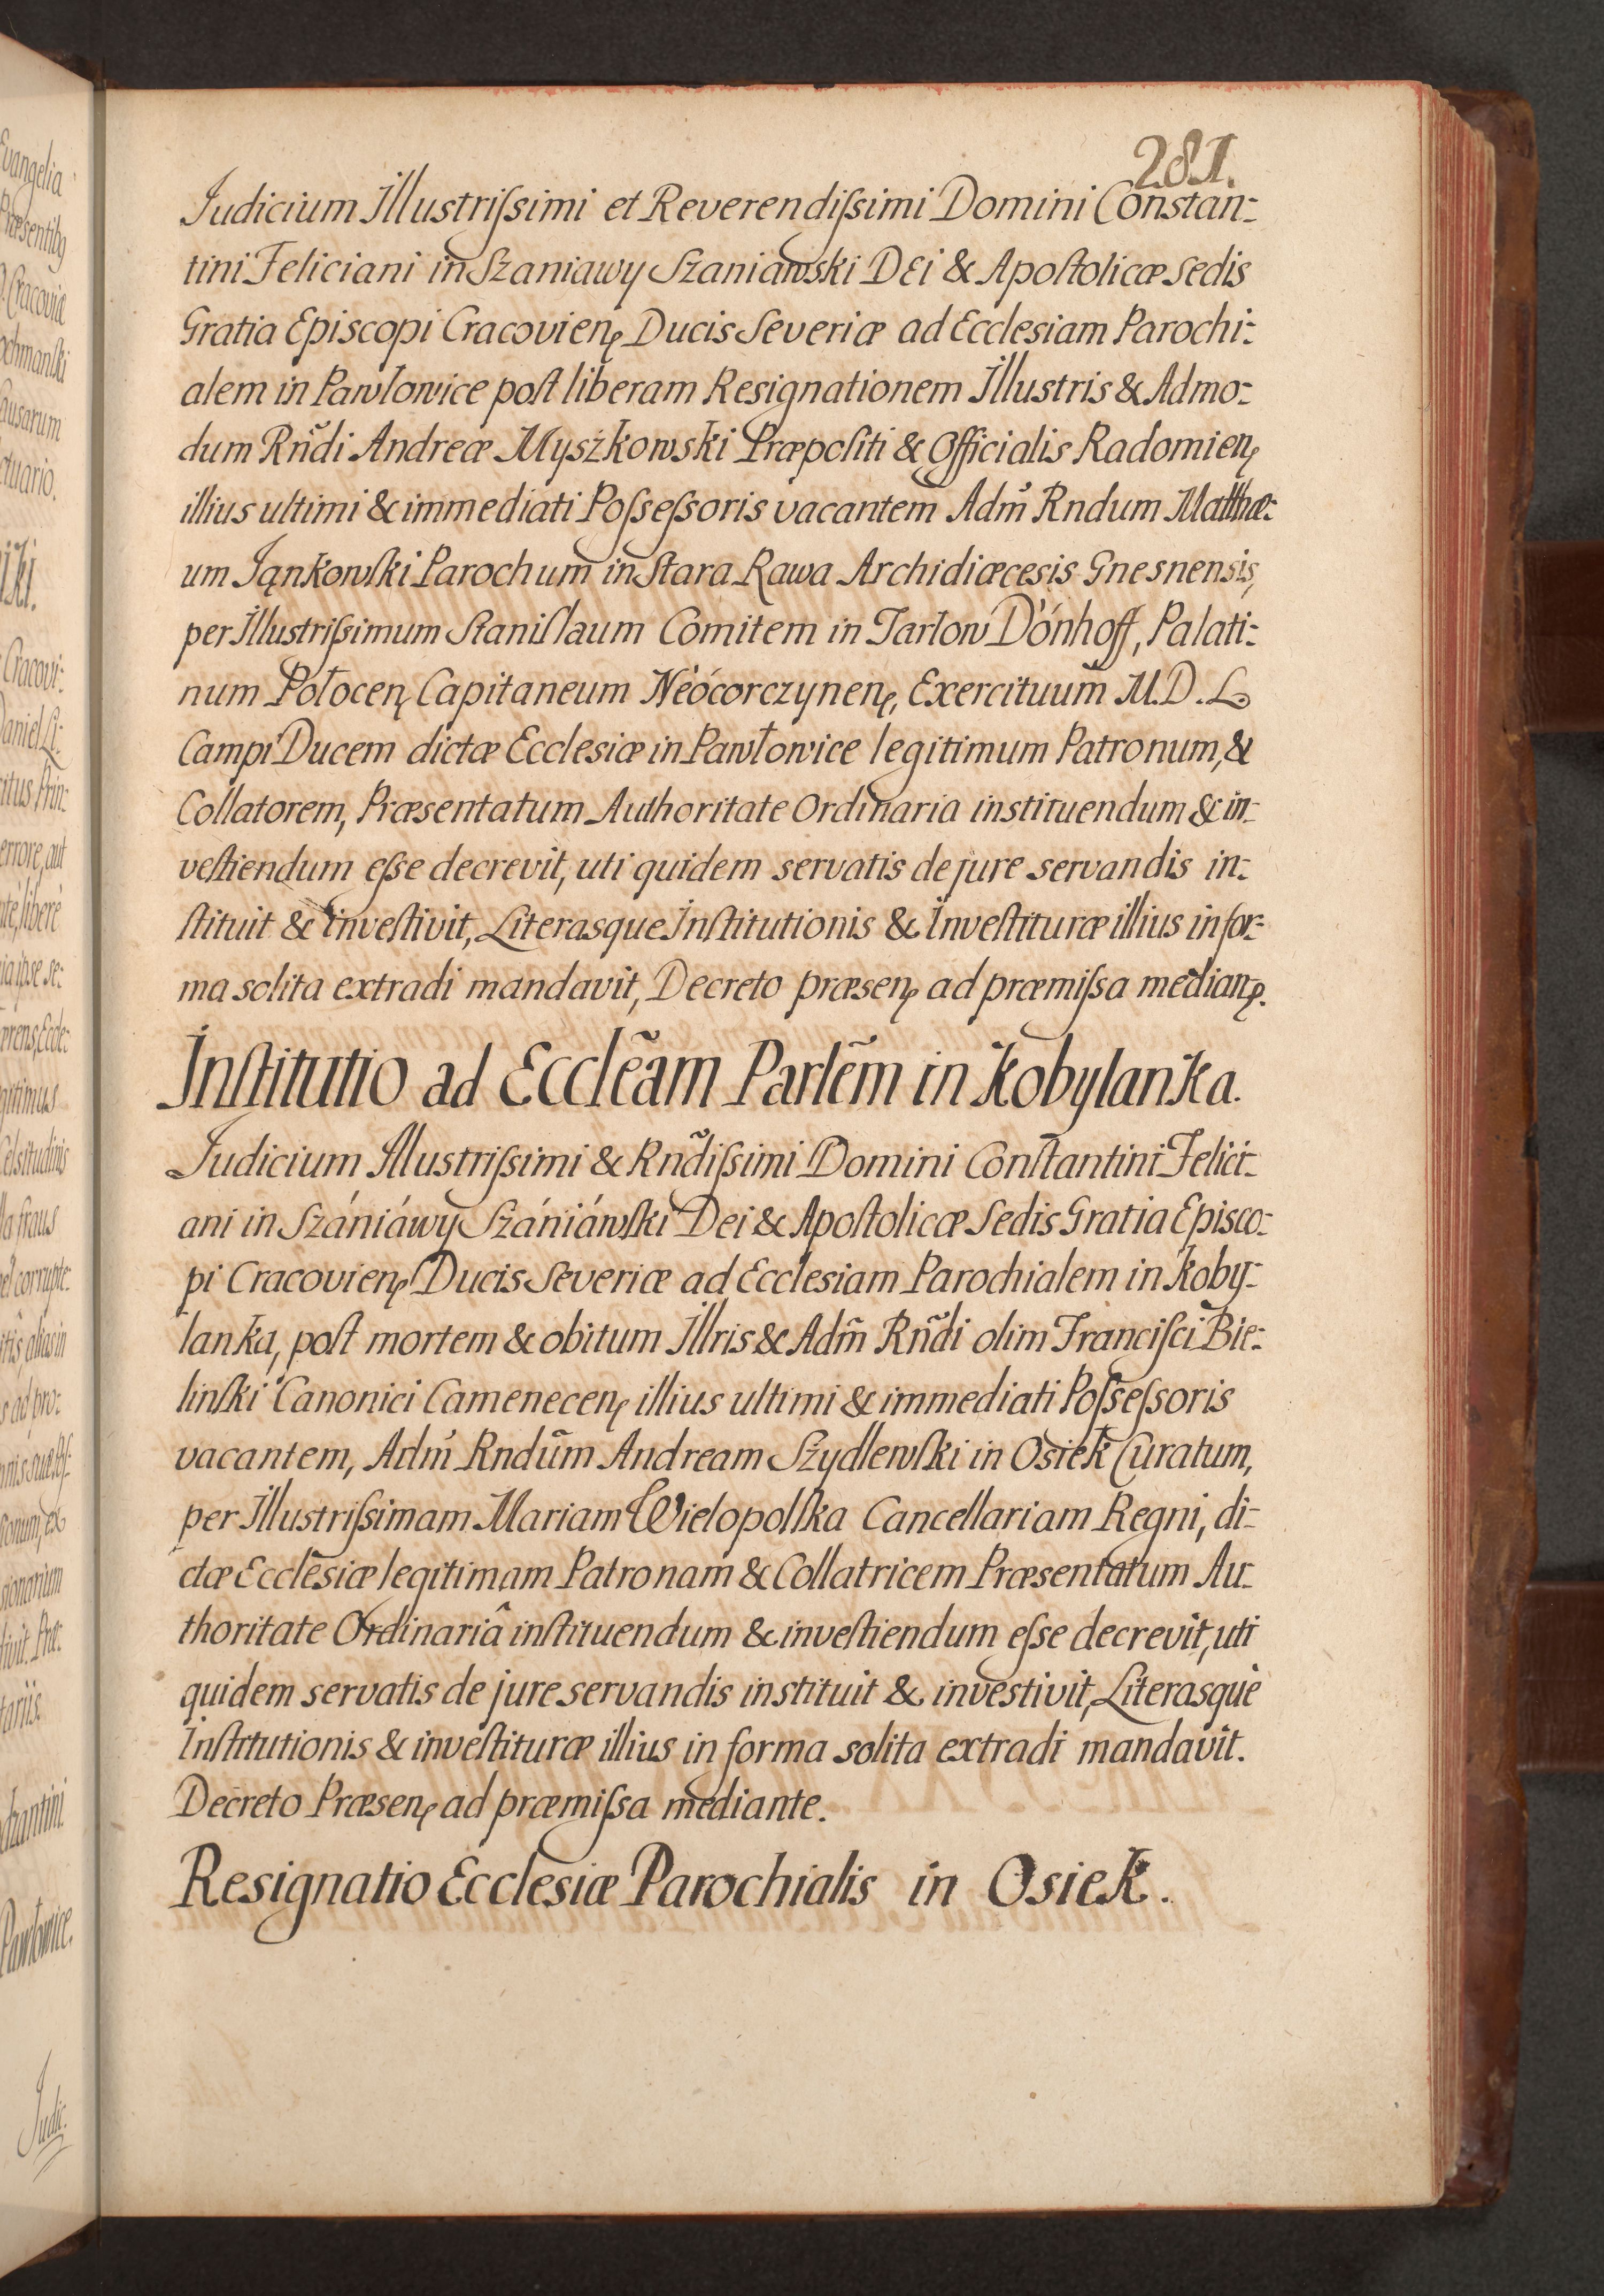 281.
Judicium Illustriſsimi et Reverendiſsimi Domini Constan-
tini Feliciani in Szaniawy Szaniawski Dei & Apoſtolicæ Sedis
Gratia Episcopi Cracovienę Ducis Severiæ ad Ecclesiam Parochi-
alem in Pawłowice poſt liberam Resignationem Illustris & Admo-
dum Rñdi Andreæ Myszkowski Præpoſiti & Officialis Radomienę
illius ultimi & immediati Poſseſsoris vacantem Adm̃ Rndum Matthæ-
um Jąnkowſki Parochum in Stara Rawa Archidiæcesis Gnesnensis,
per Illustriſsimum Staniſlaum Comitem in Tarłow Dönhoff, Palati-
num Połocenę Capitaneum Neócorczynenę, Exercituum M.D.L.
Campi Ducem dictæ Ecclesiæ in Pawłowice legitimum Patronum, &
Collatorem, Præsentatum Authoritate Ordinaria instituendum & in-
veſtiendum eſse decrevit, uti quidem servatis de jure servandis in-
ſtituit & inveſtivit, Literasque Inſtitutionis & Inveſtituræ illius in for-
ma solita extradi mandavit, Decreto præsenę ad præmiſsa medianę.
Inſtitutio ad Ecclẽam Parlẽm in Kobylanka.
Judicium Illustriſsimi & Rnd̃iſsimi Domini Conſtantini Felici-
ani in Szániáwy Szániáwſki Dei & Apoſtolicæ Sedis Gratia Episco-
pi Cracovienę Ducis Severiæ ad Ecclesiam Parochialem in Koby-
lanka, poſt mortem & obitum Illris & Adm̃ Rñdi olim Franciſci Bie-
linſki Canonici Camenecenę illius ultimi & immediati Poſseſsoris
vacantem, Adm̃ Rndũm Andream Szydlewſki in Osiek Curatum,
per Illustriſsimam Mariam Wielopolſka Cancellariam Regni, di-
ctæ Ecclesiæ legitimam Patronam & Collatricem Præsentatum Au-
thoritate Ordinariâ inſtituendum & inveſtiendum eſse decrevit, uti
quidem servatis de jure servandis instituit & investivit, Literasquè
Inſtitutionis & inveſtituræ illius in forma solita extradi mandavit.
Decreto Præsenę ad præmiſsa mediante.
Resignatio Ecclesiæ Parochialis in Osiek.